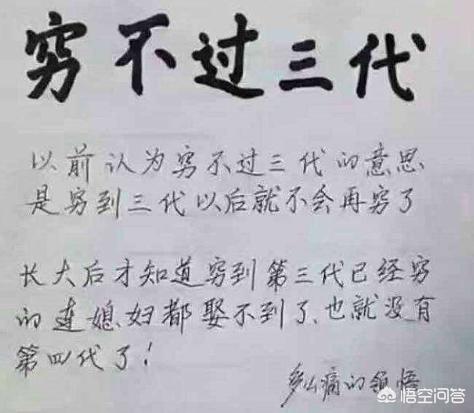 穷不过三代
以前认为穷不过三代的意思
是穷到三代以后就不会再穷了
长大后才知道穷到第三代已经穷
的连媳妇都娶不到了、也就没有
第四代了!
多么痛的领悟
悟空问答